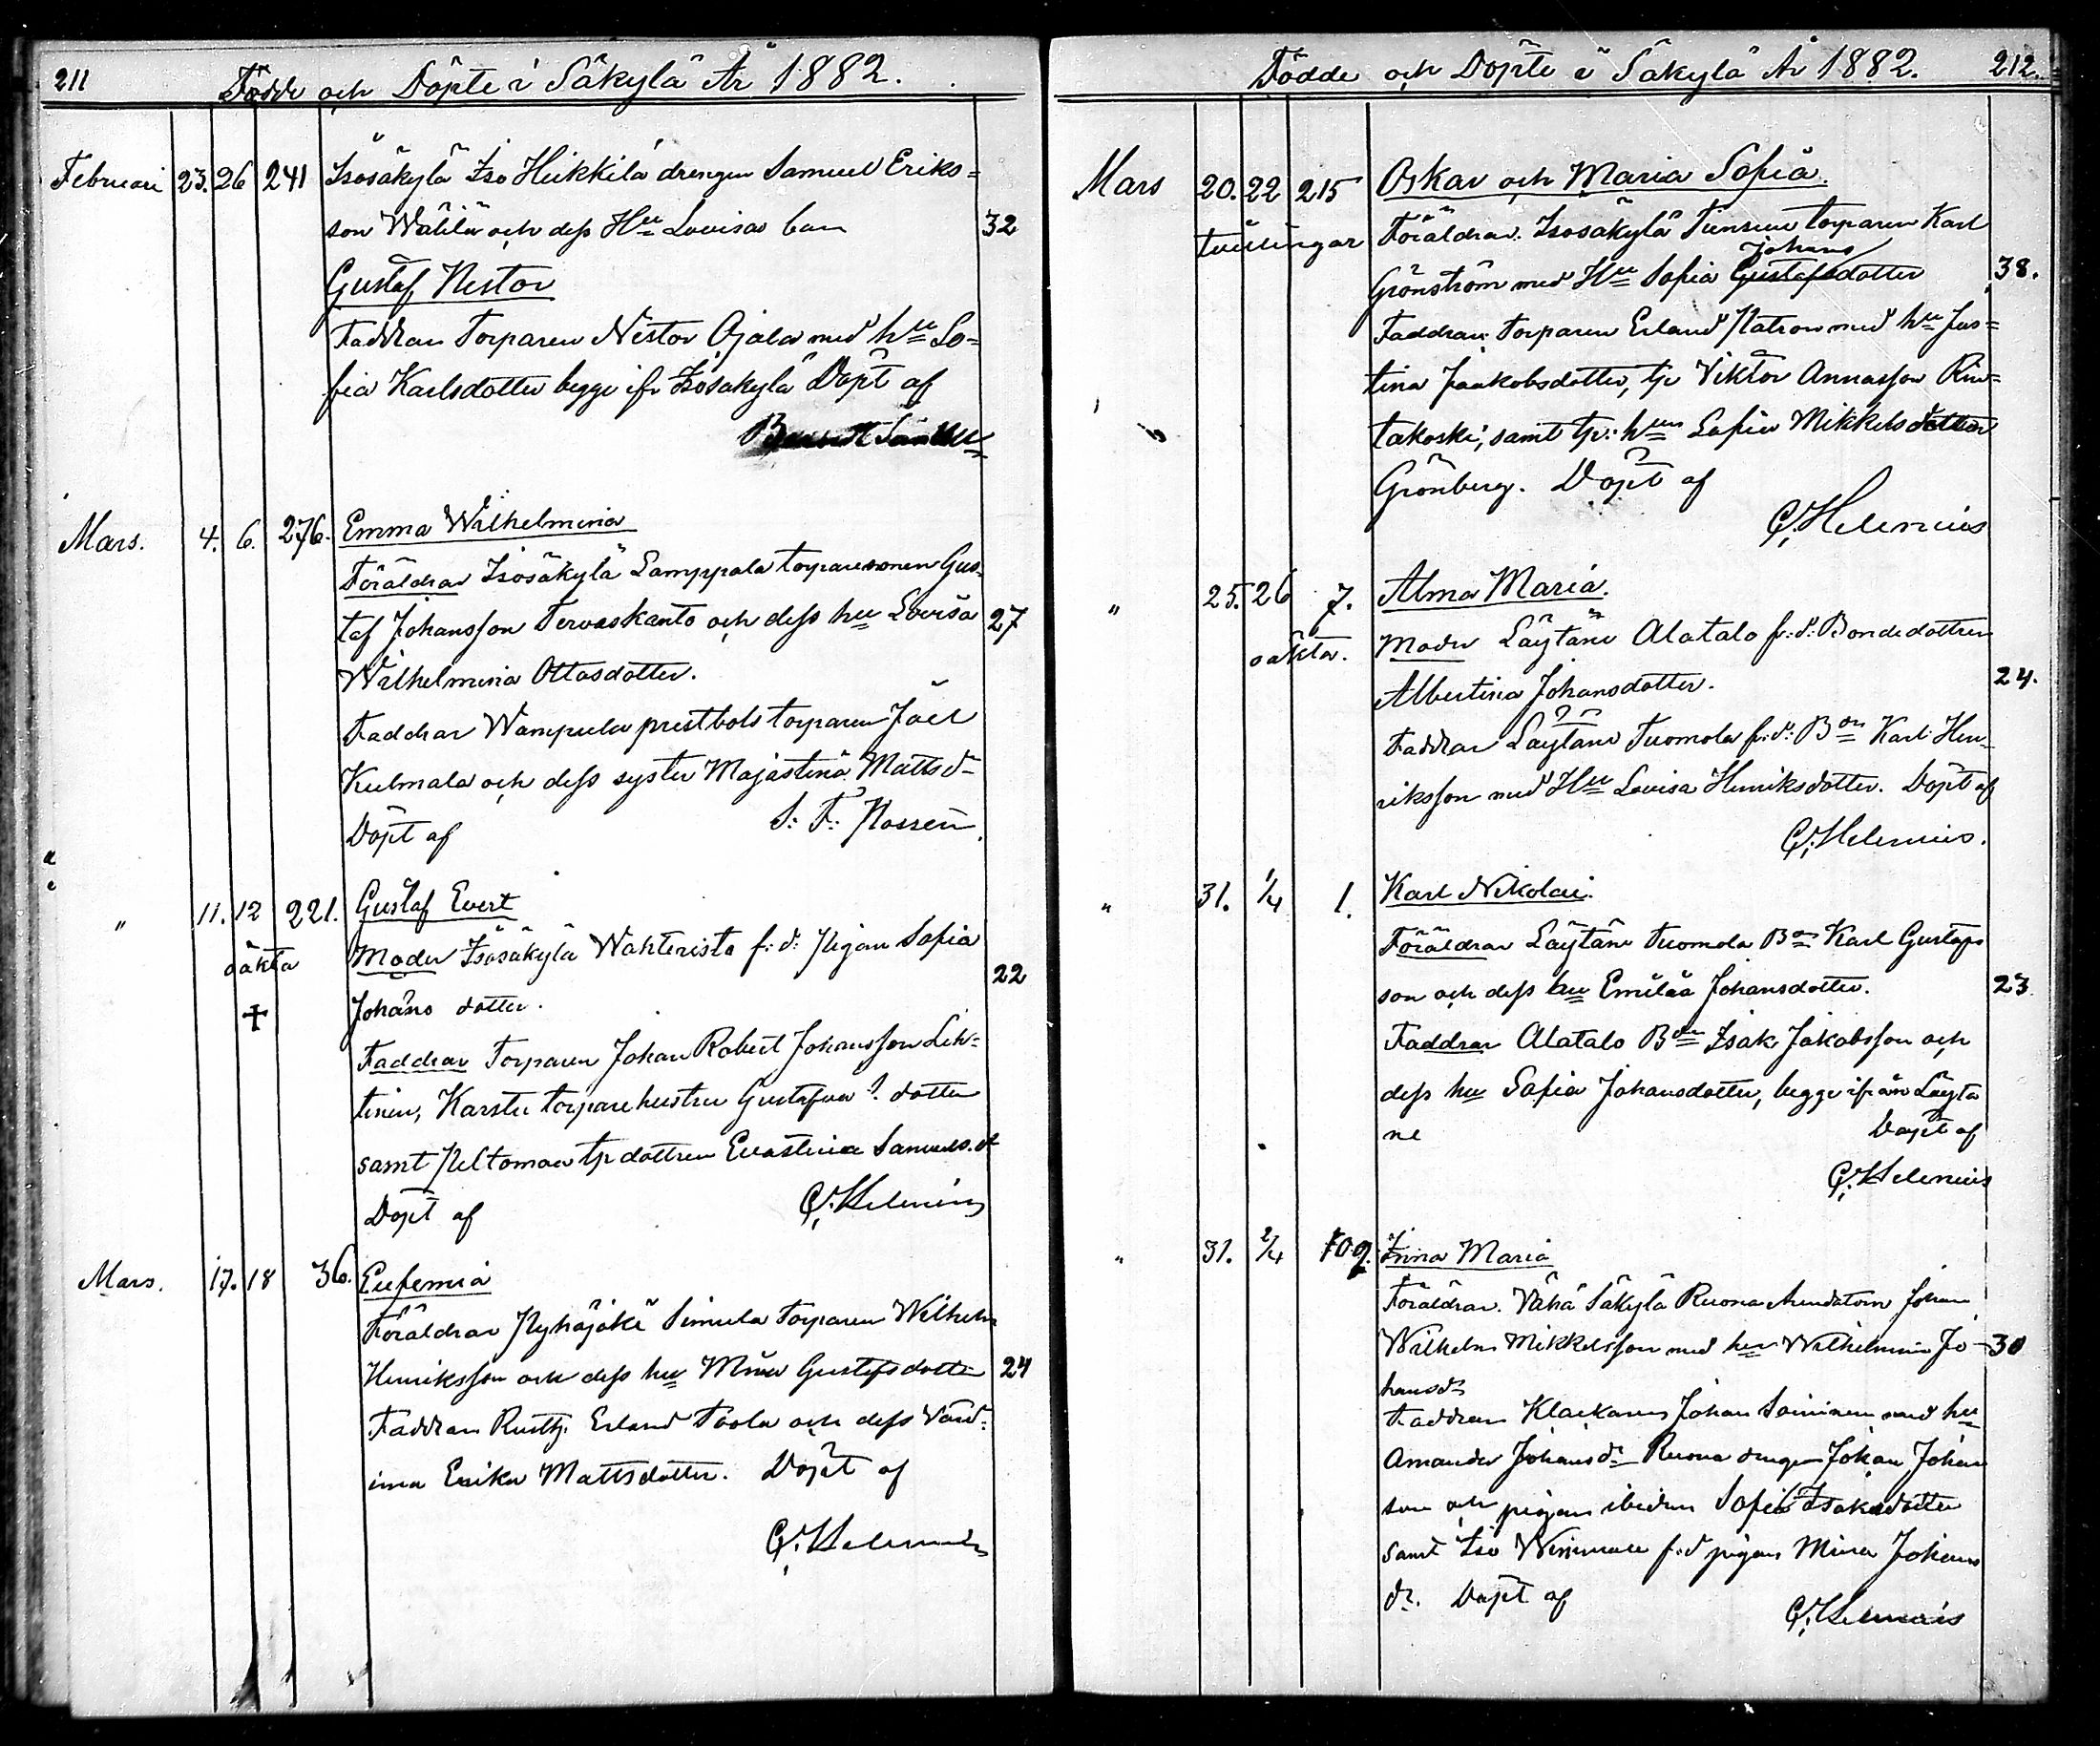 211
Födde och Döpte i Säkylä År 1882.
Februari 23. 26 241 Isosäkylä Iso Heikkilä drengen Samuel Eriks=
son Wählä och dess Hu Lovisas barn 32
Gustaf Nestor
Faddrar Torparen Nestor Ojala med hu So=
fia Karlsdotter begge ifr Isosäkylä Döpt af
Mars. 4. 6. 276. Emma Wilhelmina
Föräldrar Isosäkylä Lamppala torparesonen Gus=
taf Johansson Tervaskanto och dess hu Lovisa 27
Wilhelmina Ottosdotter.
Faddrar Wampula prestbols torparen Joel
Kulmala och dess syster Majastina Mattsd-
Döpt af S: F: Nassen
" 11. 12 221. Gustaf Evert
oäkta Moder Isosäkylä Wahterista f: d: Pigan Sofia 22
+ Johans dotter.
Faddrar Torparen Johan Robert Johansson Leh=
tinen, Karstu torparehustru Gustafva ?. dotter
samt Peltomaa tp dottren Evastina Samuels. d
Döpt af G. Helenius
Mars. 17. 18 36. Eufemia
Föräldrar Pyhäjoki Simula Torparen Wilhelm
Henriksson och dess hu Mina Gustafsdotter 24
Faddrar Rusth. Erland Toola och dess Värd=
inna Erika Mattsdotter. Döpt af
G. Helenius
Födde och Döpte i Säkylä År 1882. 212.
Mars 20. 22 215 Oskar och Maria Sofia.
tvillingar Föräldrar. Isosäkylä torparen Karl
Johans
Grönström med Hu Sofia Gustafsdotter 38.
Faddrar: Torparen Erland med hu Jus=
tina Jaakobsdotter, tp Viktor Annasson Rin=
takoski, samt tp: hun Sofia Mikkelsdotter
Grönberg. Döpt af
G. Helenius
" 25. 26 7. Alma Maria.
oäkta. Moder Löytäne Alatalo f: d: Bondedottren
Albertina Johansdotter. 24.
Faddrar Löytäne Tuomola f: d: Bon Karl Hen=
riksson med Hu Lovisa Henriksdotter. Döpt af
G. Helenius.
" 31. 1/4 1. Karl Nikolai.
Föräldrar Löytäne Tuomola Bon Karl Gustafs
son och dess hu Emilia Johansdotter. 23
Faddrar Alatalo Bon Isak Jakobsson och
dess hu Sofia Johansdotter, begge ifrån Löytä
ne Döpt af
G. Helenius
" 31. 2/4 109. Irina Maria
Föräldrar. Vähä Säkylä Ruona Arendatorn Johan
Wilhelm Mikkelsson med hu Wilhelmina Jo- 30
hansdr
Faddrar Klockaren Johan Soininen med hu
Amanda Johansdr Ruona drengen Johan Johans
son och pigan ibidem Sofia Isaksdotter
samt Iso f: d pigan Mina Johans
dr. Döpt af
G. Helenius